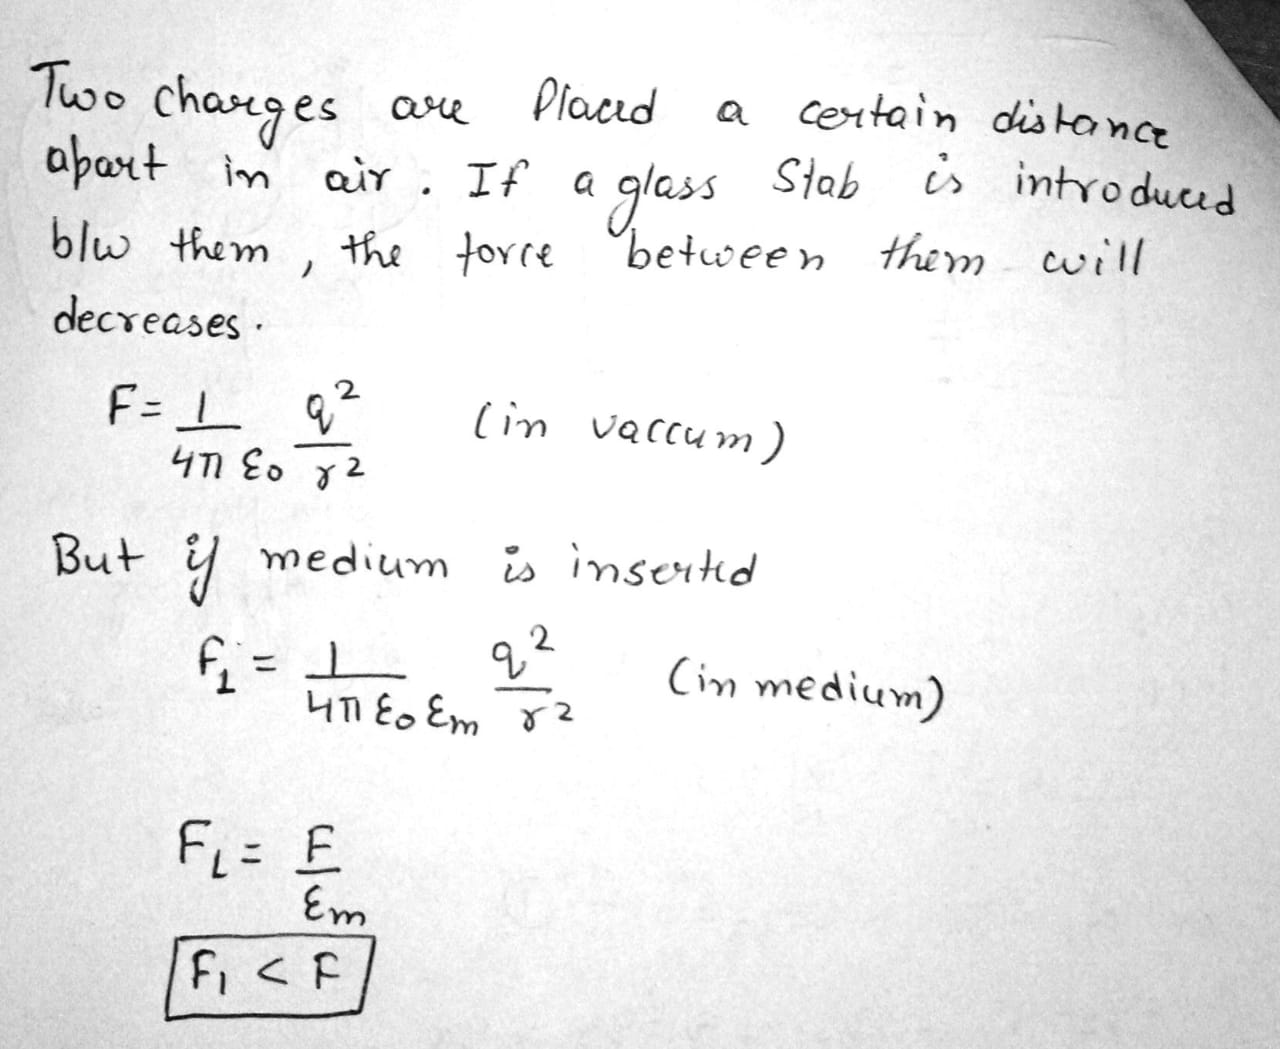 Two charges are Placed a certain distance
apart in air. If a glass Slab is introduced
b/w them, the force between them will
decreases.
F = 1/4π ε0 q²/r² (in vaccum)
But if medium is inserted
F1 = 1/4π ε0 εm q²/r² (in medium)
F1 = F/εm
F1 < F